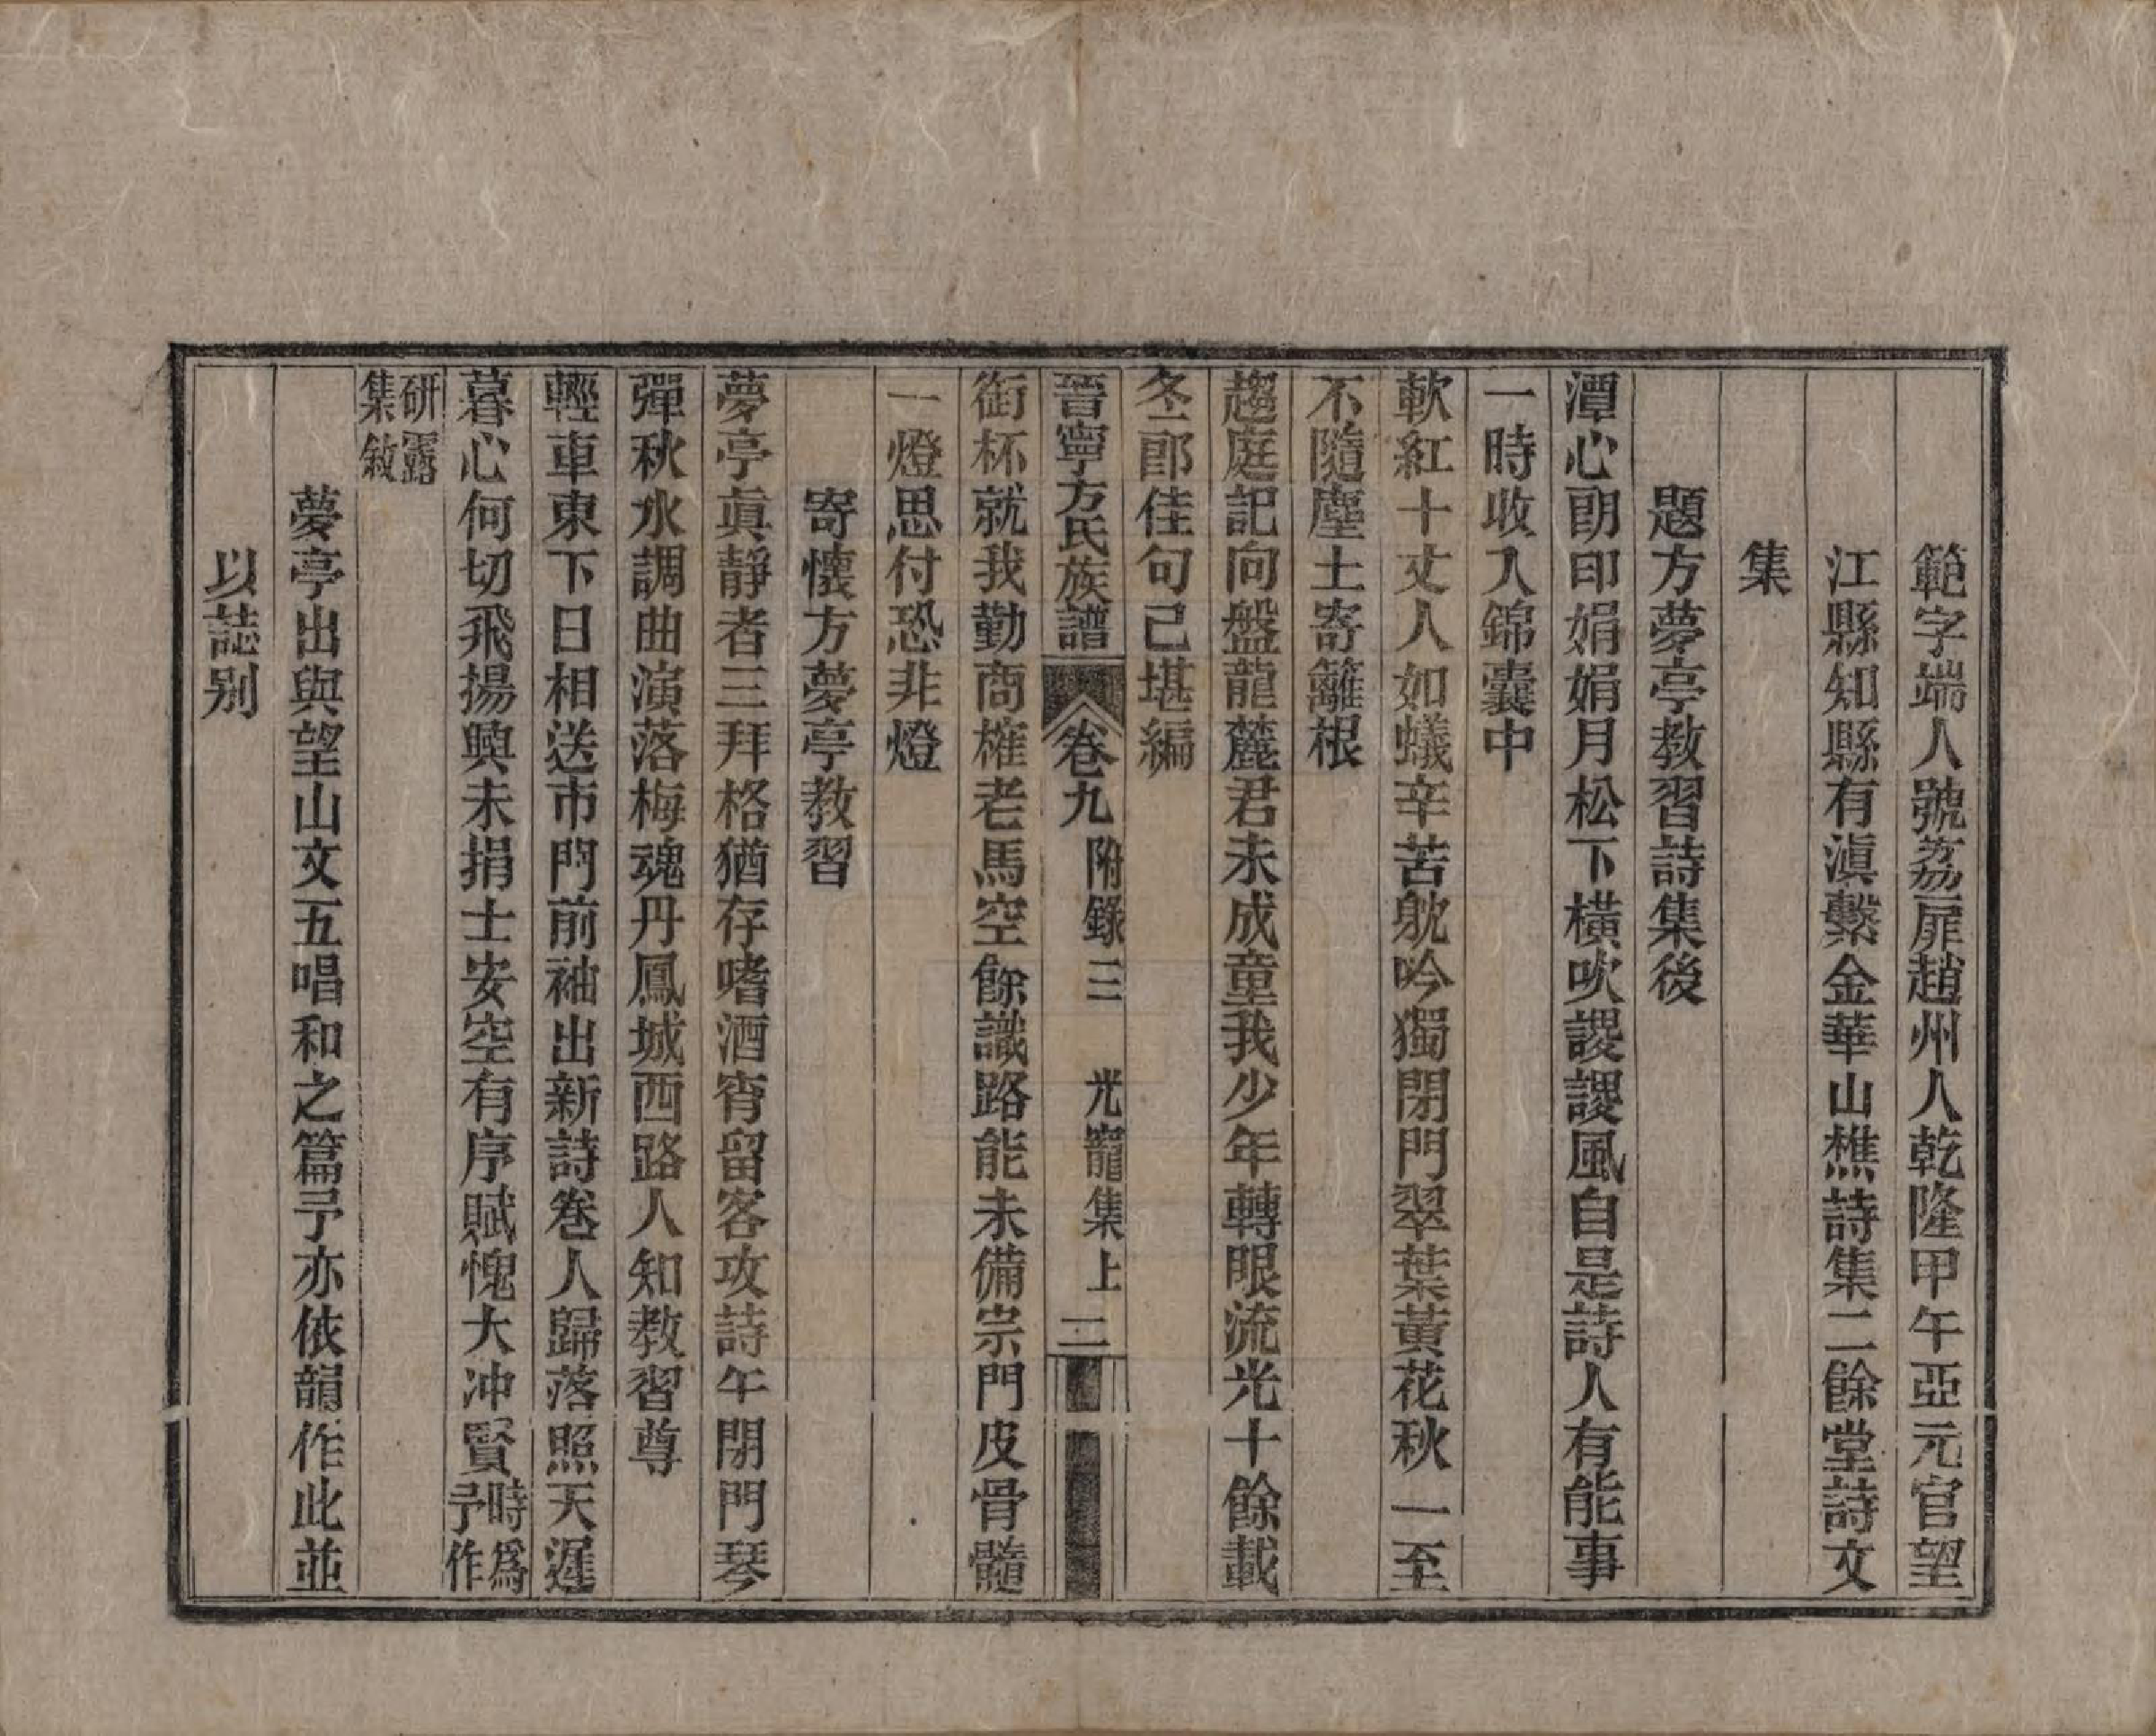 範字端人號荔扉趙州人乾隆甲午亞元官望
江縣知縣有滇繫金華山樵詩集二餘堂詩文
集
題方夢亭教習詩集後
潭心朗印娟娟月松下橫吹謖謖風自是詩人有能事
一時收入錦囊中
軟紅十丈人如蟻辛苦躭吟獨閉門翠葉黃花秋一至
不隨塵土寄籬根
趨庭記向盤龍麓君未成童我少年轉眼流光十餘載
冬郎佳句已堪編
晉寧方氏族譜 卷九 附錄三 光寵集上 二
銜杯就我勤商榷老馬空餘識路能未備宗門皮骨髓
一燈思付恐非燈
寄懷方夢亭教習
夢亭眞靜者三拜格猶存嗜酒宵留客攻詩午閉門琴
彈秋水調曲演落梅魂丹鳳城西路人知教習尊
輕車東下日相送市門前袖出新詩卷人歸落照天遲
暮心何切飛揚興未捐士安空有序賦愧大冲賢時爲予作
研露集敘
夢亭出與望山文五唱和之篇予亦依韻作此並
以誌別